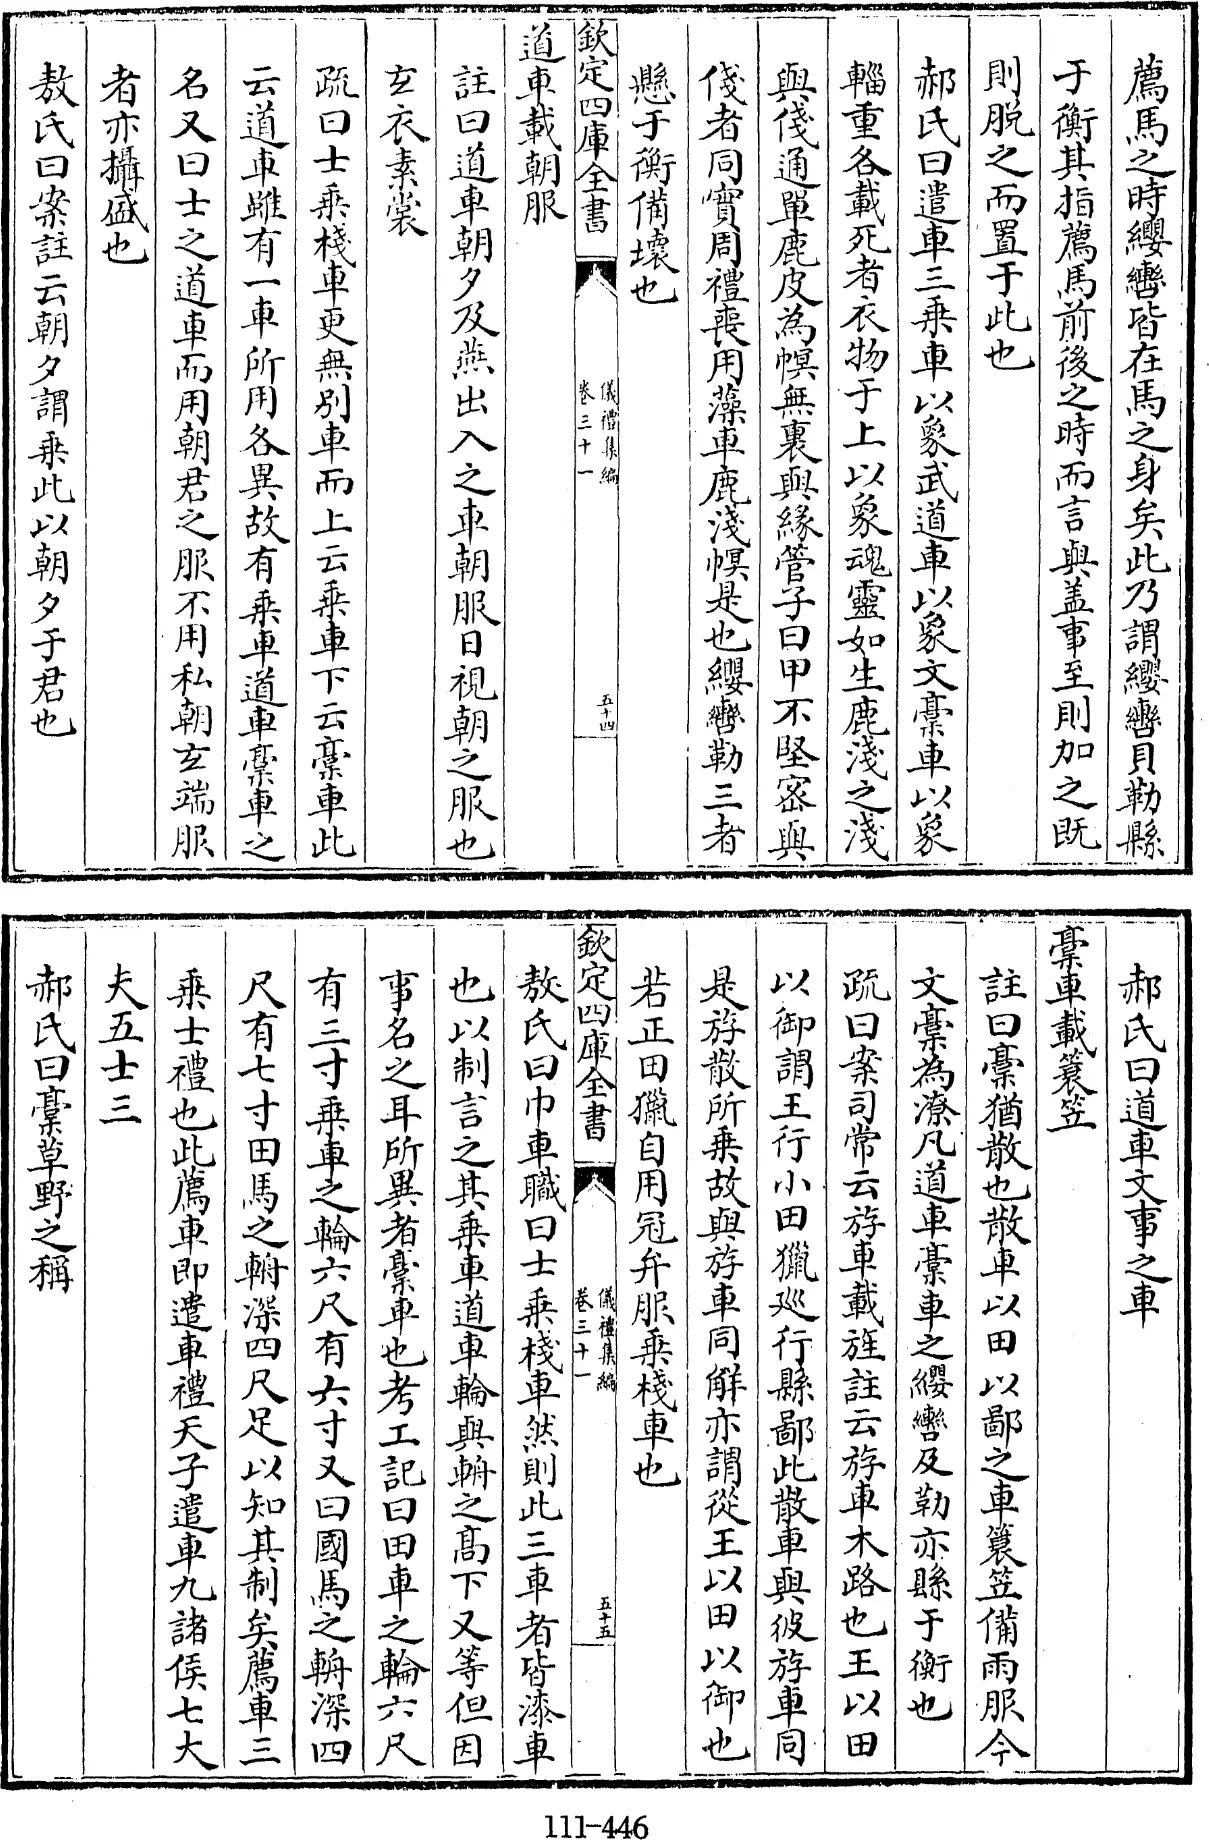 薦馬之時纓轡皆在馬之身矣此乃謂纓轡貝勒縣
于衡其指薦馬前後之時而言與盖事至則加之既
則脱之而置于此也
郝氏曰遣車三乗車以象武道車以象文稾車以象
輜重各載死者衣物于上以象魂靈如生鹿淺之淺
與俴通單鹿皮為幎無裏與緣管子曰甲不堅密與
俴者同實周禮喪用藻車鹿淺幎是也纓轡勒三者
懸于衡備壞也
欽定四庫全書
儀禮集編
卷三十一
五十四
道車載朝服
註曰道車朝夕及燕出入之車朝服日視朝之服也
玄衣素裳
疏曰士乗棧車更無別車而上云乗車下云稾車此
云道車雖有一車所用各異故有乗車道車稾車之
名又曰士之道車而用朝君之服不用私朝玄端服
者亦攝盛也
敖氏曰案註云朝夕謂乗此以朝夕于君也
郝氏曰道車文事之車
稾車載簑笠
註曰稾猶散也散車以田以鄙之車簑笠備雨服今
文稾為潦凡道車稾車之纓轡及勒亦縣于衡也
疏曰案司常云斿車載旌註云斿車木路也王以田
以御謂王行小田獵廵行縣鄙此散車與彼斿車同
是斿散所乗故與斿車同解亦謂從王以田以御也
若正田獵自用冠弁服乗棧車也
欽定四庫全書
儀禮集編
卷三十一
五十五
敖氏曰巾車職曰士乗棧車然則此三車者皆漆車
也以制言之其乗車道車輪與輈之髙下又等但因
事名之耳所異者稾車也考工記曰田車之輪六尺
有三寸乗車之輪六尺有六寸又曰國馬之輈深四
尺有七寸田馬之輈深四尺足以知其制矣薦車三
乗士禮也此薦車即遣車禮天子遣車九諸侯七大
夫五士三
郝氏曰稾草野之稱
111-446